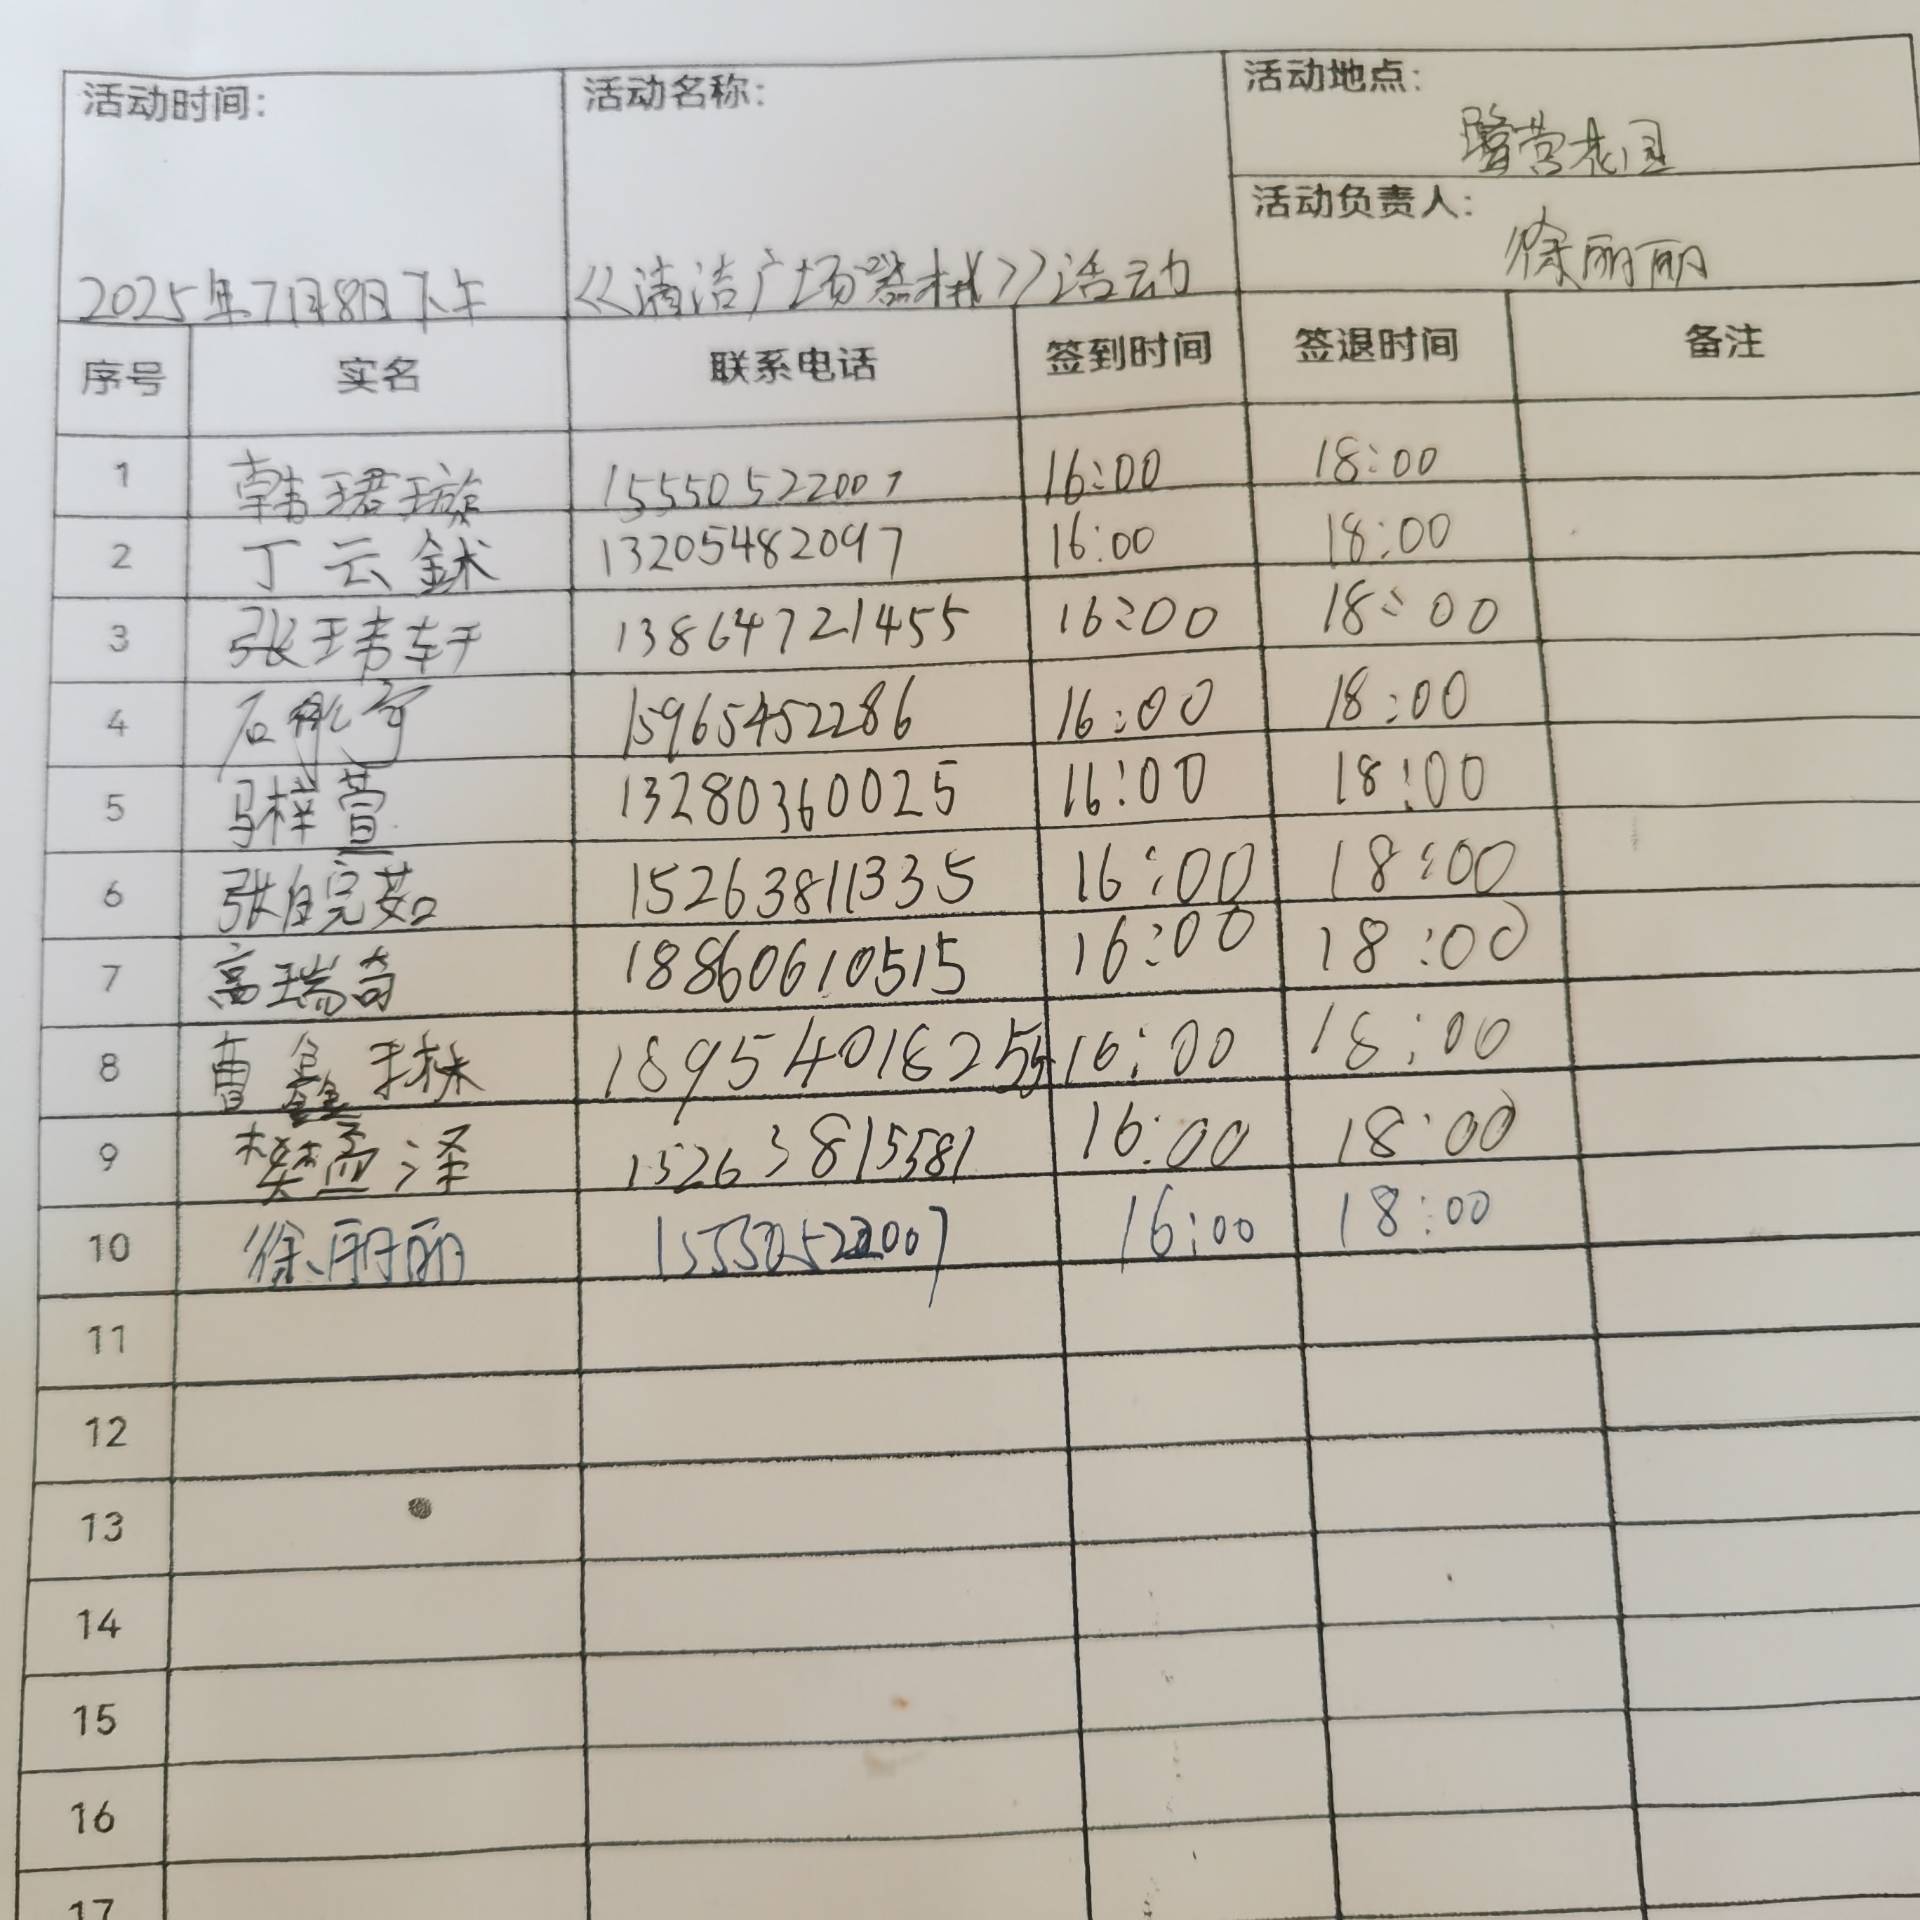 活动时间: 活动名称: 活动地点:
营花园
活动负责人:
徐丽丽
2025年7月8日下午 《清洁广场器械》活动
序号 实名 联系电话 签到时间 签退时间 备注
1 韩珺璇 15550522007 16:00 18:00
2 丁云鉥 13205482097 16:00 18:00
3 张玮轩 13864721455 16:00 18:00
4 石 15965452286 16:00 18:00
5 马梓萱 13280360025 16:00 18:00
6 张皖茹 15263811335 16:00 18:00
7 高瑞奇 18860610515 16:00 18:00
8 曹鑫 16:00 18:00
9 樊孟泽 15263815581 16:00 18:00
10 徐丽丽 15550522007 16:00 18:00
11
12
13
14
15
16
17